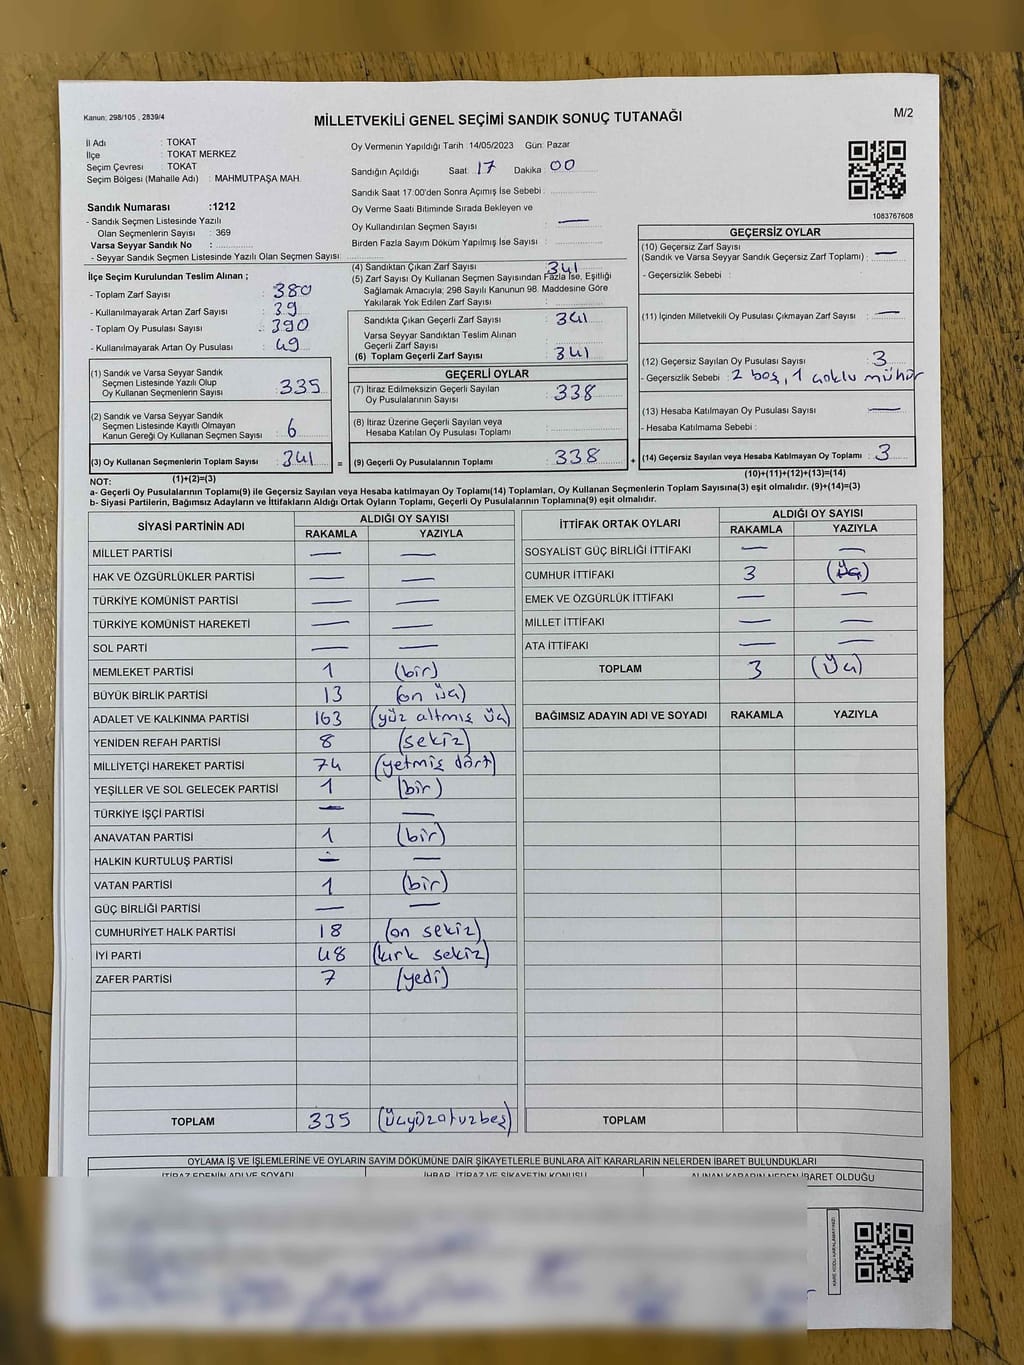 Kanun: 298/105 , 2839/4
MİLLETVEKİLİ GENEL SEÇİMİ SANDIK SONUÇ TUTANAĞI
M/2
İl Adı : TOKAT
İlçe : TOKAT MERKEZ
Seçim Çevresi : TOKAT
Seçim Bölgesi (Mahalle Adı) : MAHMUTPAŞA MAH.
Oy Vermenin Yapıldığı Tarih : 14/05/2023 Gün: Pazar
Sandığın Açıldığı Saat : 17 Dakika : 00
Sandık Saat 17:00'den Sonra Açımış İse Sebebi :
Oy Verme Saati Bitiminde Sırada Bekleyen ve
Oy Kullandırılan Seçmen Sayısı : —
Birden Fazla Sayım Döküm Yapılmış İse Sayısı :
1083767608
Sandık Numarası :1212
- Sandık Seçmen Listesinde Yazılı
Olan Seçmenlerin Sayısı : 369
Varsa Seyyar Sandık No :
- Seyyar Sandık Seçmen Listesinde Yazılı Olan Seçmen Sayısı :
İlçe Seçim Kurulundan Teslim Alınan ;
- Toplam Zarf Sayısı : 380
- Kullanılmayarak Artan Zarf Sayısı : 39
- Toplam Oy Pusulası Sayısı : 390
- Kullanılmayarak Artan Oy Pusulası : 49
(1) Sandık ve Varsa Seyyar Sandık
Seçmen Listesinde Yazılı Olup
Oy Kullanan Seçmenlerin Sayısı : 335
(2) Sandık ve Varsa Seyyar Sandık
Seçmen Listesinde Kayıtlı Olmayan
Kanun Gereği Oy Kullanan Seçmen Sayısı : 6
(3) Oy Kullanan Seçmenlerin Toplam Sayısı : 341
(1)+(2)=(3)
(4) Sandıktan Çıkan Zarf Sayısı : 341
(5) Zarf Sayısı Oy Kullanan Seçmen Sayısından Fazla İse, Eşitliği
Sağlamak Amacıyla; 298 Sayılı Kanunun 98. Maddesine Göre
Yakılarak Yok Edilen Zarf Sayısı :
Sandıkta Çıkan Geçerli Zarf Sayısı : 341
Varsa Seyyar Sandıktan Teslim Alınan
Geçerli Zarf Sayısı :
(6) Toplam Geçerli Zarf Sayısı : 341
GEÇERLİ OYLAR
(7) İtiraz Edilmeksizin Geçerli Sayılan
Oy Pusulalarının Sayısı : 338
(8) İtiraz Üzerine Geçerli Sayılan veya
Hesaba Katılan Oy Pusulası Toplamı :
= (9) Geçerli Oy Pusulalarının Toplamı : 338 +
GEÇERSİZ OYLAR
(10) Geçersiz Zarf Sayısı
(Sandık ve Varsa Seyyar Sandık Geçersiz Zarf Toplamı) : —
- Geçersizlik Sebebi :
(11) İçinden Milletvekili Oy Pusulası Çıkmayan Zarf Sayısı : —
(12) Geçersiz Sayılan Oy Pusulası Sayısı : 3
- Geçersizlik Sebebi : 2 boş, 1 çoklu mühür
(13) Hesaba Katılmayan Oy Pusulası Sayısı : —
- Hesaba Katılmama Sebebi :
(14) Geçersiz Sayılan veya Hesaba Katılmayan Oy Toplamı : 3
(10)+(11)+(12)+(13)=(14)
NOT:
a- Geçerli Oy Pusulalarının Toplamı(9) ile Geçersiz Sayılan veya Hesaba katılmayan Oy Toplamı(14) Toplamları, Oy Kullanan Seçmenlerin Toplam Sayısına(3) eşit olmalıdır. (9)+(14)=(3)
b- Siyasi Partilerin, Bağımsız Adayların ve İttifakların Aldığı Ortak Oyların Toplamı, Geçerli Oy Pusulalarının Toplamına(9) eşit olmalıdır.
SİYASİ PARTİNİN ADI ALDIĞI OY SAYISI
RAKAMLA YAZIYLA
MİLLET PARTİSİ — —
HAK VE ÖZGÜRLÜKLER PARTİSİ — —
TÜRKİYE KOMÜNİST PARTİSİ — —
TÜRKİYE KOMÜNİST HAREKETİ — —
SOL PARTİ — —
MEMLEKET PARTİSİ 1 (bir)
BÜYÜK BİRLİK PARTİSİ 13 (on üç)
ADALET VE KALKINMA PARTİSİ 163 (yüz altmış üç)
YENİDEN REFAH PARTİSİ 8 (sekiz)
MİLLİYETÇİ HAREKET PARTİSİ 74 (yetmiş dört)
YEŞİLLER VE SOL GELECEK PARTİSİ 1 (bir)
TÜRKİYE İŞÇİ PARTİSİ — —
ANAVATAN PARTİSİ 1 (bir)
HALKIN KURTULUŞ PARTİSİ — —
VATAN PARTİSİ 1 (bir)
GÜÇ BİRLİĞİ PARTİSİ — —
CUMHURİYET HALK PARTİSİ 18 (on sekiz)
İYİ PARTİ 48 (kırk sekiz)
ZAFER PARTİSİ 7 (yedi)
TOPLAM 335 (üçyüzotuzbeş)
İTTİFAK ORTAK OYLARI ALDIĞI OY SAYISI
RAKAMLA YAZIYLA
SOSYALİST GÜÇ BİRLİĞİ İTTİFAKI — —
CUMHUR İTTİFAKI 3 (üç)
EMEK VE ÖZGÜRLÜK İTTİFAKI — —
MİLLET İTTİFAKI — —
ATA İTTİFAKI — —
TOPLAM 3 (üç)
BAĞIMSIZ ADAYIN ADI VE SOYADI RAKAMLA YAZIYLA
TOPLAM
OYLAMA İŞ VE İŞLEMLERİNE VE OYLARIN SAYIM DÖKÜMÜNE DAİR ŞİKAYETLERLE BUNLARA AİT KARARLARIN NELERDEN İBARET BULUNDUKLARI
İTİRAZ EDENİN ADI VE SOYADI İHBAR, İTİRAZ VE ŞİKAYETİN KONUSU ALINAN KARARIN NEDEN İBARET OLDUĞU